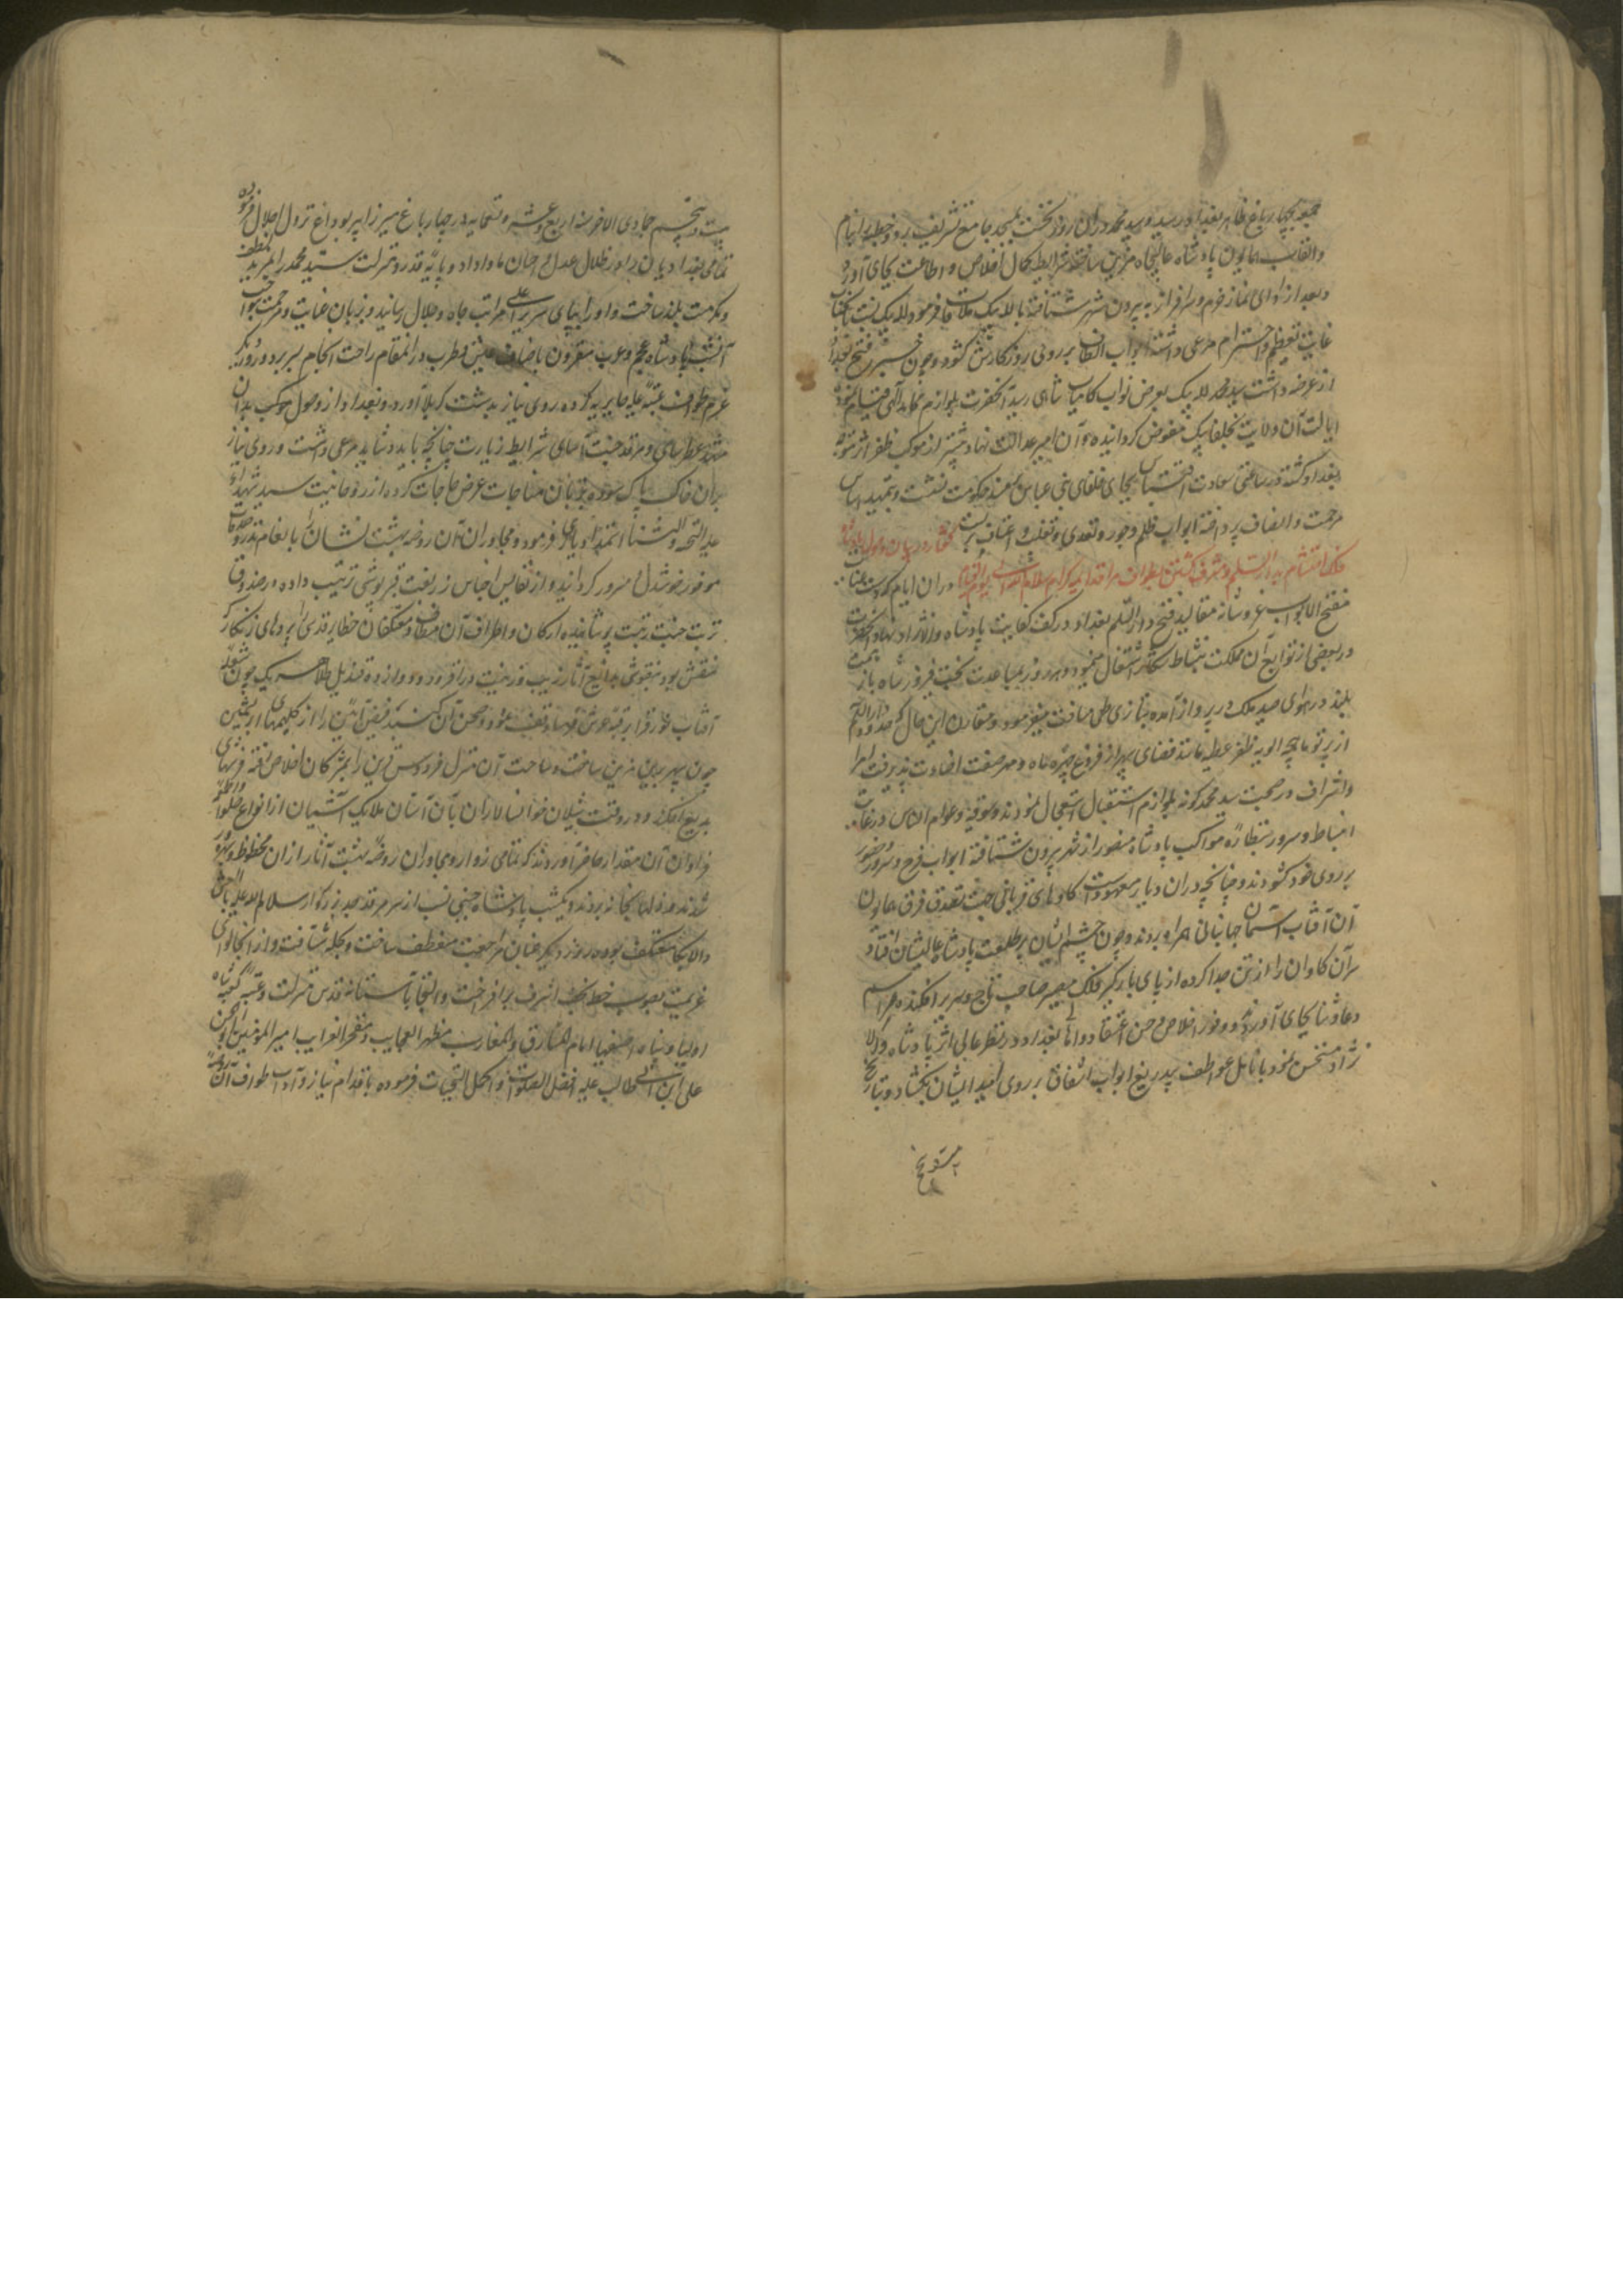 جمعه بچهار باغ ظاهر بغداد رسید و سید محمد در آن روز نخست بمسجد جامع تشریف برد و خطبه را بنام
و القاب همایون پادشاه عالیجاه مزین ساخته شرایط کمال اخلاص و اطاعت بجای آورد
و بعد از ادای نماز خرم و سرافراز به بیرون شهر شتافته با لله بیک ملاقات فرمود و لله بیک نسبت بآنجناب
غایت تعظیم و احترام مرعی داشته ابواب الطاف بر روی روزکارش کشود و چون خبر فتح بغداد
از عرضه داشت سید محمد و لله بیک بعرض نواب کامیاب شاهی رسید آنحضرت بلوازم محامد الهی قیام نمود
ایالت آن ولایت بخلفا بیک مفوض کردانیده و آن امیر عدالت نهاد پیشتر از موکب ظفر اثر متوجه
بغداد کشته در ساعتی سعادت اقتباس بجای خلفای بنی عباس بمسند حکومت نشست و بتمهید اساس
مرحمت و انصاف پرداخته ابواب ظلم و جور و تعدی و تغلب و اعتساف بربست گفتار در بیان وصول پادشاه
فلک احتشام بدار السلام و مشرف گشتن بطواف مراقد ائمه کرام سلام الله علیهم الی یوم القیام در آن ایام که بدست عنایت
مفتح الابواب عز و شانه مقالید فتح دار السلام بغداد در کف کفایت پادشاه وافر داد نهاد آنحضرت
در بعضی از توابع آن مملکت بنشاط شکار اشتغال مینمود و هر روز بمساعدت بخت فیروز شاه باز همت
بلند در هوای صید ملک در پرواز آمده بتازی طی مسافت میفرمود و مقارن این حال که حدود دار السلام
از پرتو ماهچه الویه ظفر عطیه مانند فضای سپهر از فروغ چهره ماه و مهر صفت اضاءت پذیرفت امرا
و اشراف در صحبت سید محمد کمونه بلوازم استقبال استعجال نمودند و سوقیه و عوام الناس در غایت
انبساط و سرور بنظاره مواکب پادشاه منصور از شهر بیرون شتافته ابواب فرح و سرور و حبور
بر روی خود کشودند و چنانچه در آن دیار معهودست کاوهای قربانی جهت تصدق فرق همایون
آن آفتاب آسمان جهانبانی همراه بردند و چون چشم ایشان بر طلعت پادشاه عالیشان افتاد
سر آن کاوان را از تن جدا کرده از پای بارگیر فلک مسیر صاحب تاج و سریر افکندند و مراسم
دعا و ثنا بجای آوردند و وفور اخلاص و حسن اعتقاد و اهالی بغداد در نظر عالی اثر پادشاه والا
نژاد مستحسن نمود بانامل عواطف بیدریغ ابواب اشفاق بر روی امید ایشان بکشاد و بتاریخ
بیست و پنجم جمادی الاخر سنه اربع و عشر و تسعمایه در چهار باغ میرزا پیر بوداغ نزول اجلال فرموده
تمامی بغدادیان را در ظلال عدل و احسان ماوا داد و پایه قدر و منزلت سید محمد را بمزید عاطفت
و مکرمت بلند ساخت و او را بپای سریر اعلی مراتب جاه و جلال رسانید و بزبان عنایت و مرحمت
آنشب پادشاه عجم و عرب مقرون باصناف عیش و طرب در آنمقام راحت انجام بسر برد و روز دیگر
عزم طواف عتبه علیه حایریه کرده روی نیاز بدشت کربلا آورد و بعد از وصول موکب بدان
مشهد عطرسای و مرقد جنت آسای شرایط زیارت چنانچه باید و شاید مرعی داشت و روی نیاز
بر آن خاک پاک سوده بزبان مناجات عرض حاجات کرده از روحانیت سید شهدا
علیه التحیه و الثنا استمداد فرمود و مجاوران آن روضه بهشت نشان را بانعام نذر و صدقات
موفور خوشدل و مسرور کردانید و از نفایس اجناس زربفت قبرپوشی ترتیب داده در صندوق
تربت جنت رتبت پوشانید و ارکان و اطراف آن مطاف معتکفان حظایر قدس را بپردهای زرنکار
منقش بود بنقوش بدایع آثار زیب و زینت در افزود و دوازده قندیل طلا هر یک چون شعله
آفتاب نور فزا بر قبه عرش فرسا وقف نمود و صحن آن کنبد فیض آیین را از کلیمهای ابریشمین
چون سپهر برین مزین ساخت و ساحت آن منزل فردوس تزیین را بمژکان اخلاص رفته فرشهای
بدیع افکند و در وقت شیلان خوانسالاران بآن آستان ملایک آشیان از انواع حلوا و اطعمه
فراوان آن مقدار حاضر آوردند که تمامی زوار و مجاوران روضه بهشت آثار از آن محظوظ و بهره‌ور
شدند و زلها بخانه بردند و یکشب پادشاه حسینی نسب از سر مرقد جد بزرکوار سلام الله علیه
والا بجا معتکف بوده روز دیگر عنان مراجعت منعطف ساخت و بحله شتافت و از آنجا لوای
عزیمت بصوب خطه نجف اشرف برافراخت و التجا بآستانه قدس منزلت و عتبه کعبه مرتبه شاه
اولیا و پناه اصفیا امام المشارق و المغارب مظهر العجایب و مفخر الغرایب امیر المؤمنین ابو الحسن
علی ابن ابی طالب علیه افضل الصلوات و اکمل التحیات فرموده باقدام نیاز و آداب طواف آن